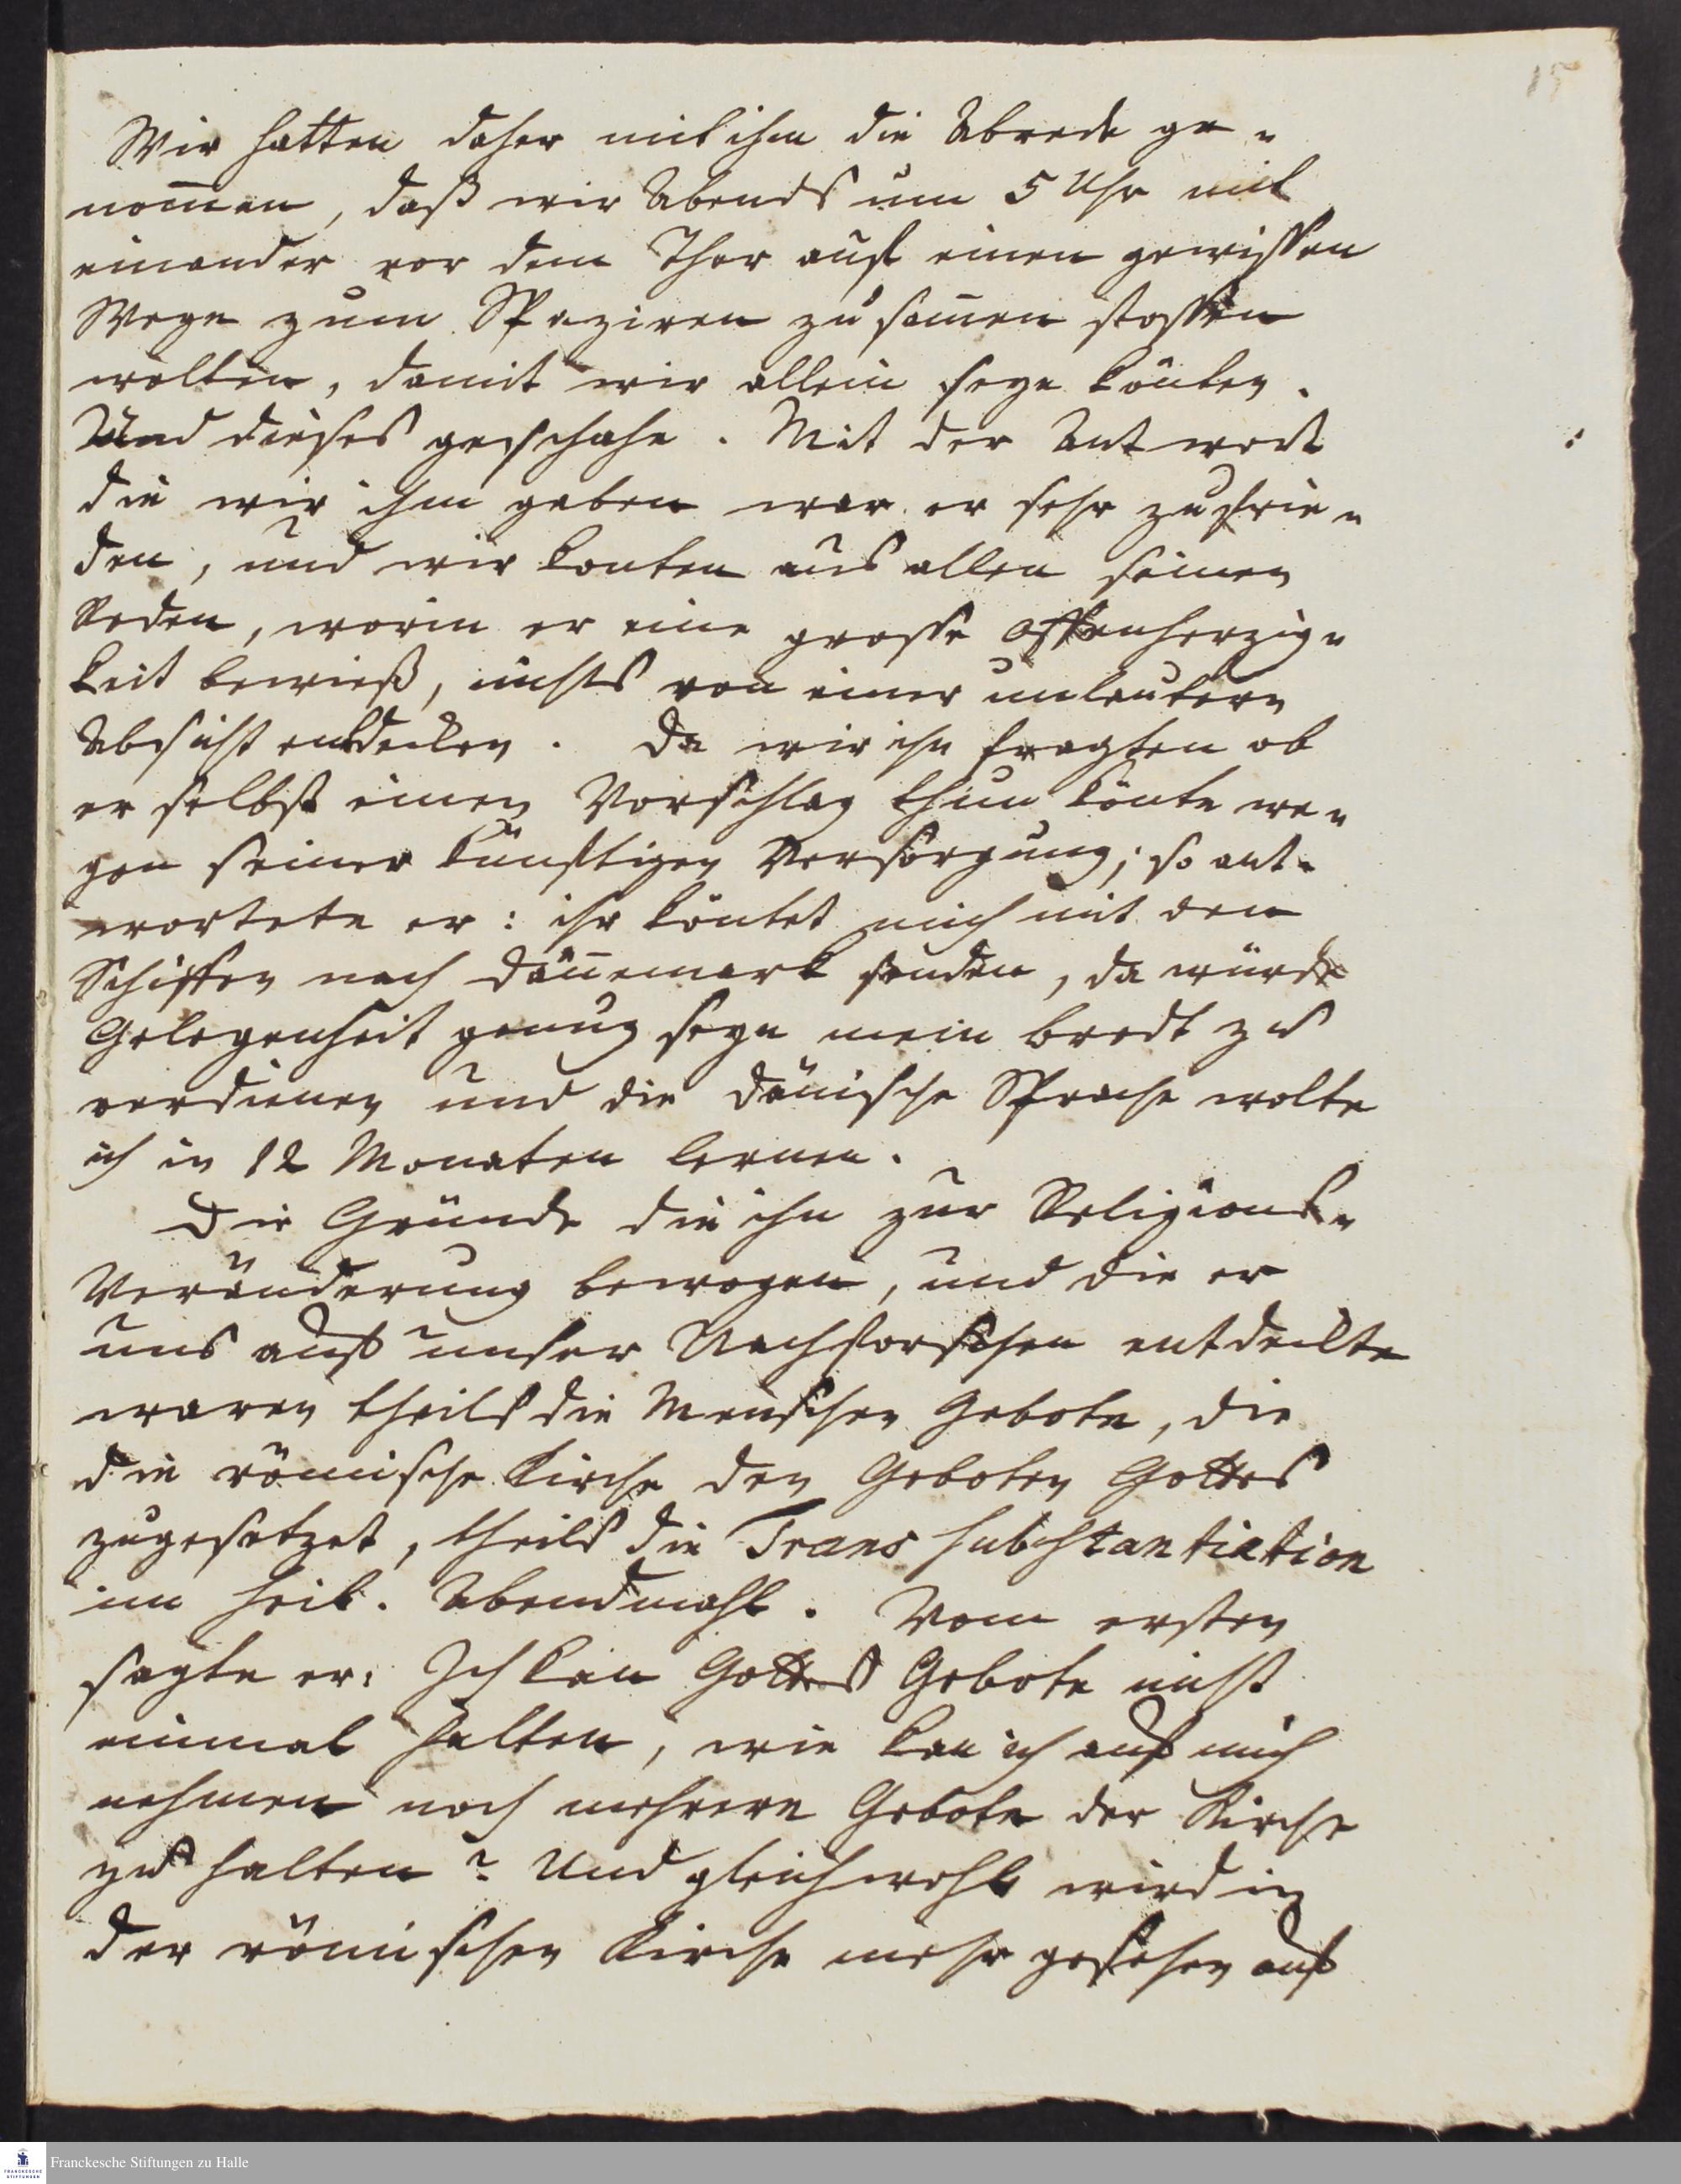 15
Wir hatten daher mit ihm die Abrede ge-
nom̅en, daß wir Abends um 5 Uhr mit
einander vor dem Thor auf einen gewissen
Wege zum Spaziren zusam̅en stossen
wolten, damit wir allein seyn könten.
Und dieses geschahe. Mit der Antwort
die wir ihm gaben war er sehr zufrie-
den, und wir konten aus allen seinen
Reden, worin er eine grosse Offenherzig-
keit bewieß, nichts von einer unlautern
Absicht entdecken. Da wir ihn fragten ob
er selbst einen Vorschlag thun könte we-
gen seiner künftigen Versorgung; so ant-
wortete er: ihr köntet mich mit den
Schiffen nach Dän̅emark senden, da würde
Gelegenheit genug seyn mein brodt zu
verdienen und die dänische Sprache wolte
ich in 12 Monaten lernen.
Die Gründe die ihn zur Religions-
Veränderung bewogen, und die er
uns auf unser Nachforschen entdeckte
waren theils die Menschen Gebote, die
die römische Kirche den Geboten Gottes
zugesetzet, theils die Trans substantiation
im heil. Abendmahl. Vom ersten
sagte er: Ich kan Gottes Gebote nicht
einmal halten, wie kan ich auf mich
nehmen noch mehrere Gebote der Kirche
zu halten? Und gleichwohl wird in
der römischen Kirche mehr gesehen auf
FRANCKESCHE STIFTUNGEN
Franckesche Stiftungen zu Halle